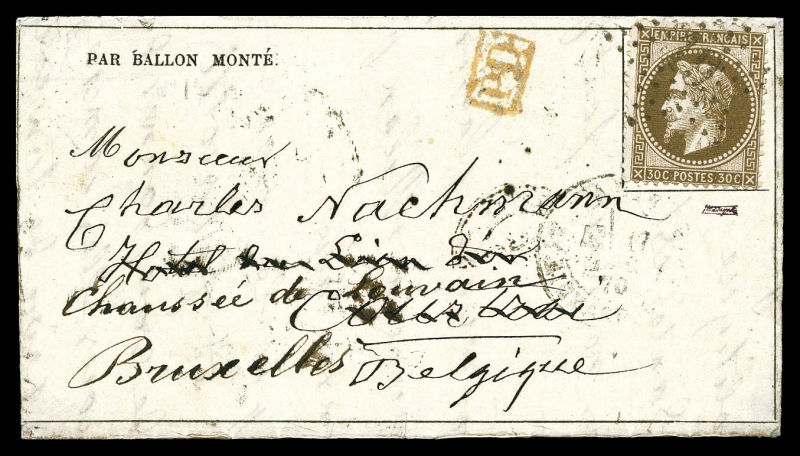 PAR BALLON MONTÉ.
PD
EMPIRE FRANÇAIS
30C POSTES 30C
Monsieur
Charles Nachmann
Hotel du Lion d'or
Chaussée de Louvain
Courtrai
Bruxelles Belgique
17
70